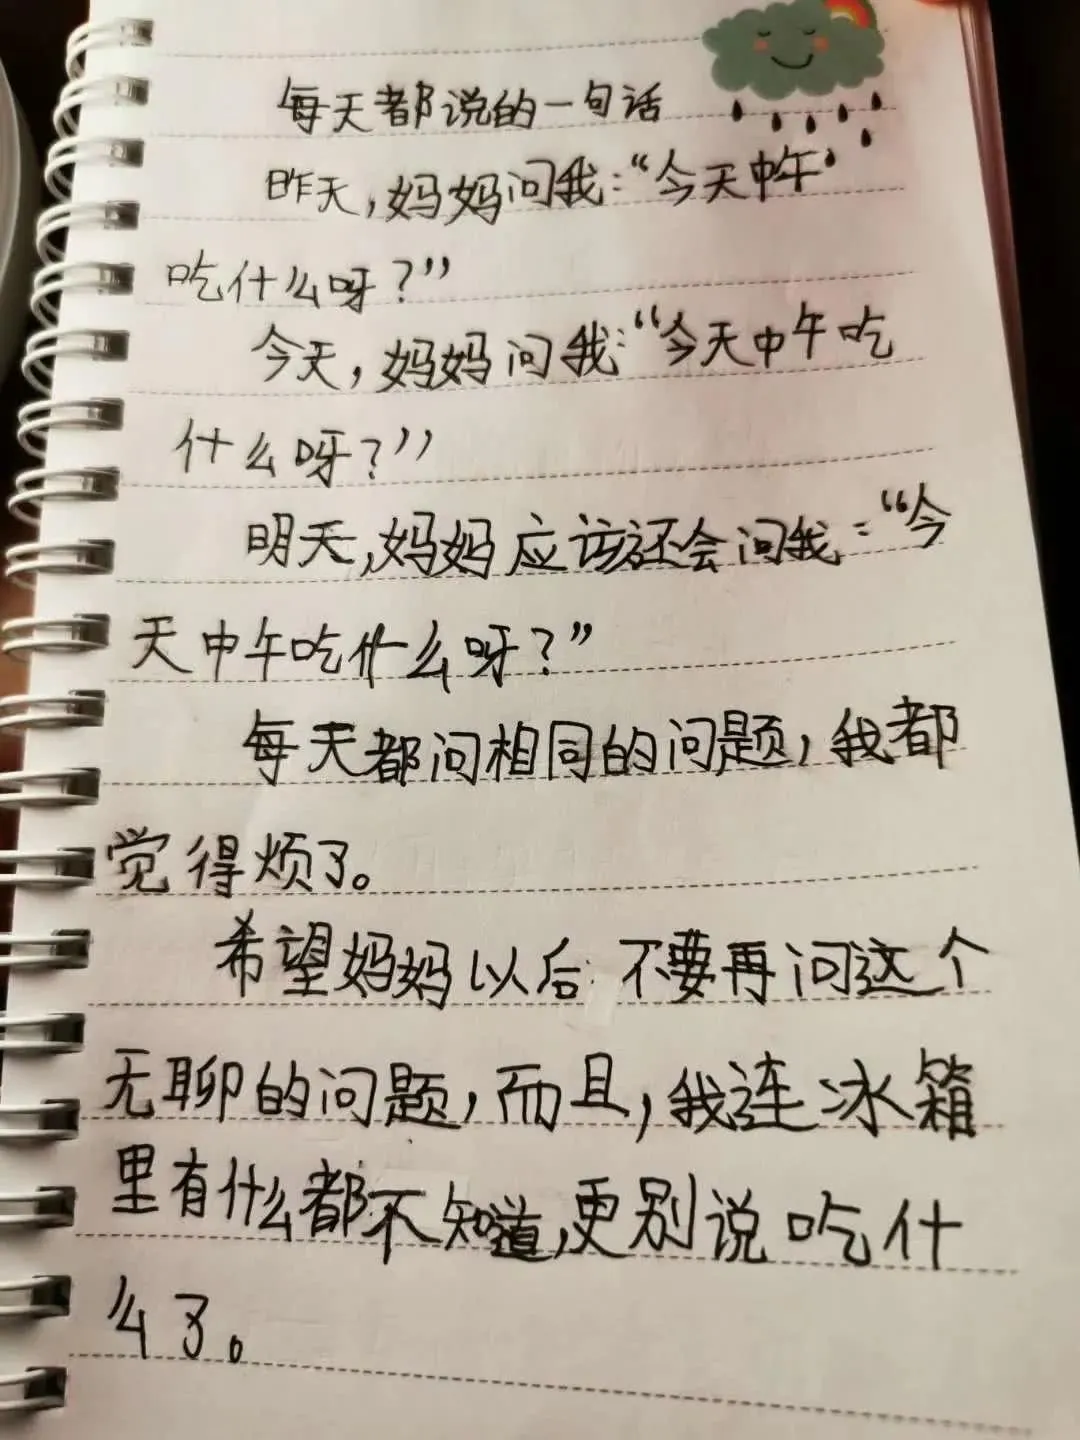 每天都说的一句话
昨天,妈妈问我:“今天中午
吃什么呀?”
今天,妈妈问我:“今天中午吃
什么呀?”
明天,妈妈应该还会问我:“今
天中午吃什么呀?”
每天都问相同的问题,我都
觉得烦了。
希望妈妈以后不要再问这个
无聊的问题,而且,我连冰箱
里有什么都不知道,更别说吃什
么了。